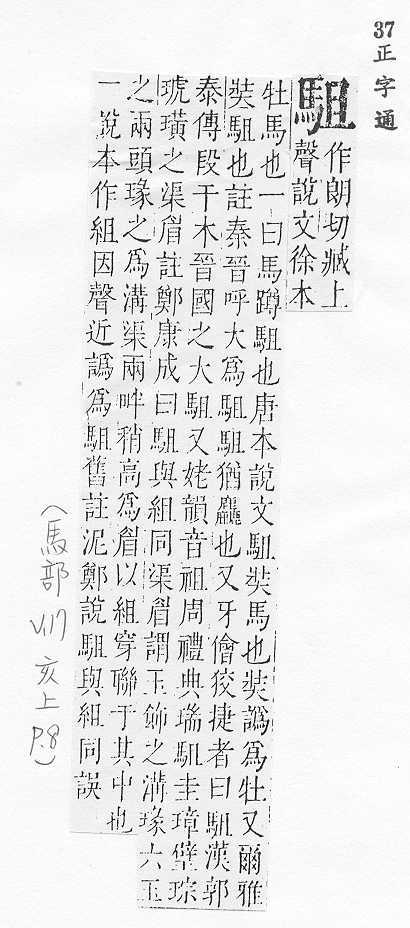 37正字通
駔
作朗切臧上
聲說文徐本
牡馬也一曰馬蹲駔也唐本說文駔奘馬也奘譌爲牡又爾雅
奘駔也註秦晉呼大爲駔駔猶麤也又牙儈狡捷者曰駔漢郭
泰傳段干木晉國之大駔又姥韻音祖周禮典瑞駔圭璋璧琮
琥璜之渠眉註鄭康成曰駔與組同渠眉謂玉飾之溝瑑六玉
之兩頭瑑之爲溝渠兩畔稍高爲眉以組穿聯于其中也
一說本作組因聲近譌爲駔舊註泥鄭說駔與組同誤
(馬部 V.17 亥上 P.8)